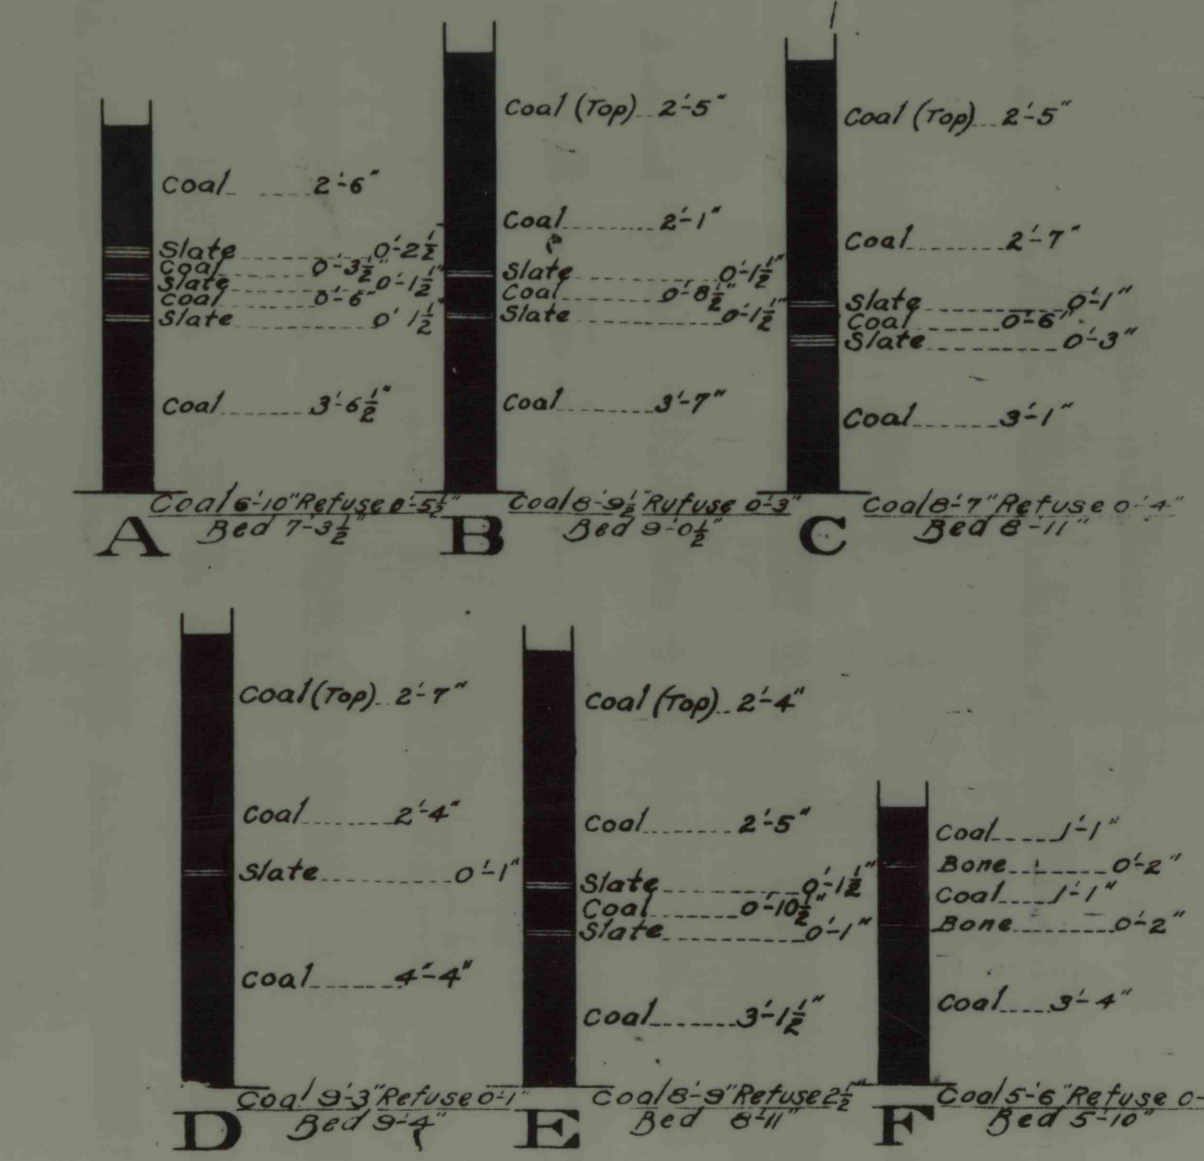 Coal 2'-6"
Slate 0'-2½"
Coal 0'-3½"
Slate 0'-1½"
Coal 0'-6"
Slate 0'1½"
Coal 3'-6½"
Coal 6'-10" Refuse 0'-5½"
Bed 7'-3½"
A
Coal (Top) 2'-5"
Coal 2'-1"
Slate 0'-1½"
Coal 0'-8½"
Slate 0'-1½"
Coal 3'-7"
Coal 8'-9½" Rufuse 0'-3"
Bed 9'-0½"
B
Coal (Top) 2'-5"
Coal 2'-7"
Slate 0'-1"
Coal 0'-6"
Slate 0'-3"
Coal 3'-1"
Coal 8'-7" Refuse 0'-4"
Bed 8'-11"
C
Coal (Top) 2'-7"
Coal 2'-4"
Slate 0'-1"
Coal 4"-4"
Coal 9'-3" Refuse 0'-1"
Bed 9'-4"
D
Coal (Top) 2'-4"
Coal 2'-5"
Slate 0'-1½"
Coal 0'-10½"
Slate 0'-1"
Coal 3'-1½"
Coal 8'-9" Refuse 2½"
Bed 8'11"
E
Coal 1'-1"
Bone 0'-2"
Coal 1'-1"
Bone 0'-2"
Coal 3'-4"
Coal 5'-6" Refuse 0'-
Bed 5'-10"
F